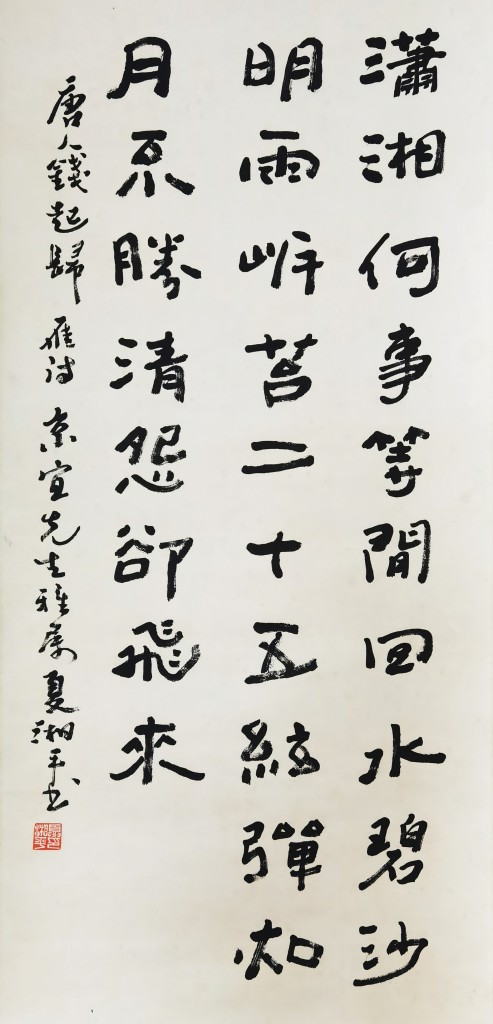 瀟湘何事等閒回水碧沙
明兩岸苔二十五絃彈夜
月不勝清怨卻飛來
唐人錢起歸雁詩 京宣先生雅屬 夏湘平书